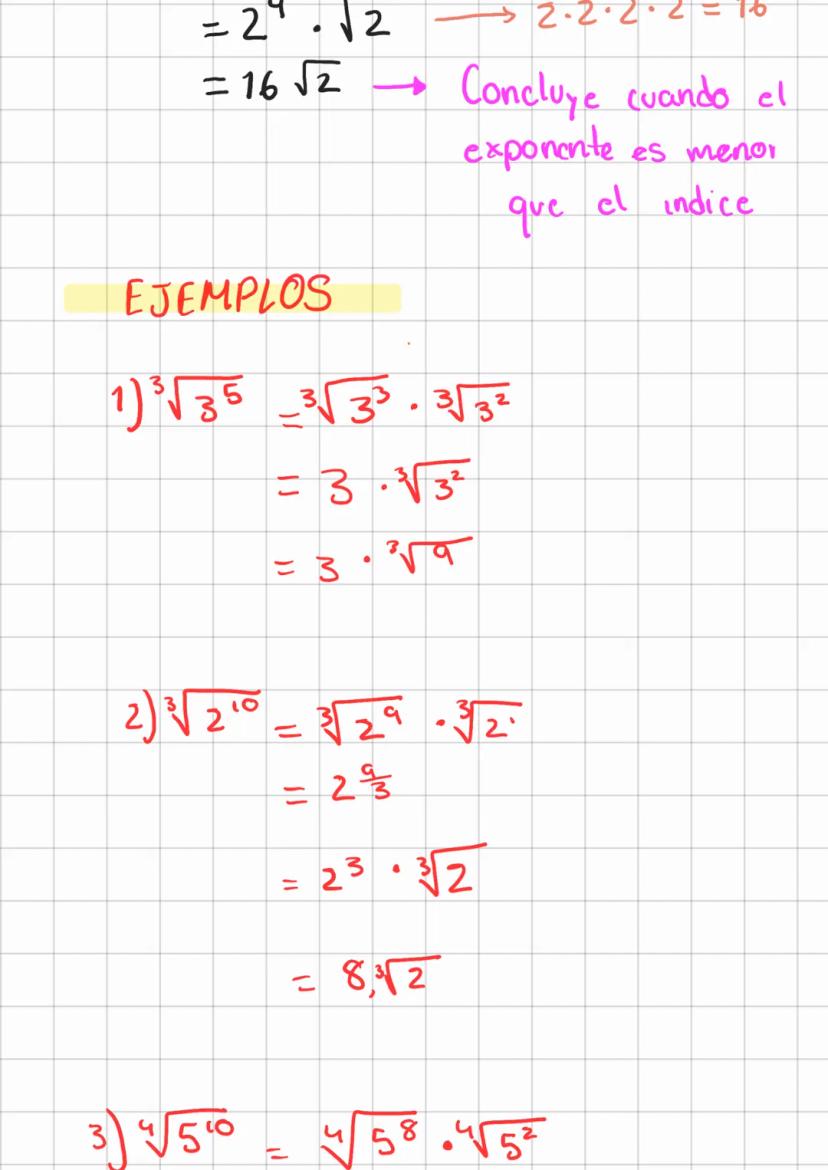 = 2⁴ · √2 → 2·2·2·2 = 16
= 16 √2 → Concluye cuando el
exponente es menor
que el indice
EJEMPLOS
1) ³√3⁵ = ³√3³ · ³√3²
= 3 · ³√3²
= 3 · ³√9
2) ³√2¹⁰ = ³√2⁹ · ³√2¹
= 2^(9/3)
= 2³ · ³√2
= 8, ³√2
3) ⁴√5¹⁰ = ⁴√5⁸ · ⁴√5²